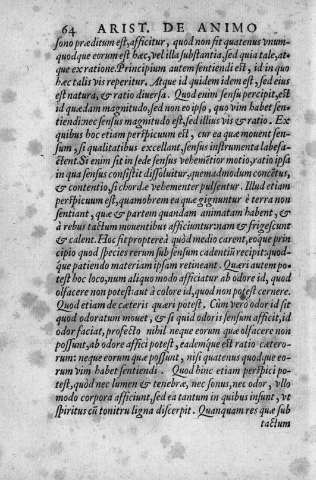 64 ARIST. DE ANIMO
sono præditum est, afficitur, quod non fit quatenus vnum-
quodque eorum est hæc, vel illa substantia, sed quia tale, at-
que ex ratione. Principium autem sentiendi est, id in quo
hæc talis vis reperitur. Atque id quidem idem est, sed eius
est natura, & ratio diuersa. Quod enim sensu percipit, est
id quædam magnitudo, sed non eo ipso, quo vim habet sen-
tiendi: nec sensus magnitudo est, sed illius vis & ratio. Ex
quibus hoc etiam perspicuum est, cur ea quæ mouent sen-
sum, si qualitatibus excellant, sensus instrumenta labefa-
ctent. Si enim sit in sede sensus vehemētior motio, ratio ipsa
in qua sensus consistit dissoluitur, quemadmodum concētus,
& contentio, si chordæ vehementer pulsentur. Illud etiam
perspicuum est, quamobrem ea quæ gignuntur è terra non
sentiant, quæ & partem quandam animatam habent, &
à rebus tactum mouentibus afficiuntur: nam & frigescunt
& calent. Hoc fit proptereà quòd medio carent, eoque prin
cipio quod species rerum sub sensum cadentiū recipit: quod-
que patiendo materiam ipsam retineant. Quæri autem po-
test hoc loco, num aliquo modo afficiatur ab odore id, quod
olfacere non potest: aut à colore id, quod non potest cernere.
Quod etiam de cæteris quæri potest. Cùm verò odor id sit
quod odoratum mouet, & si quid odoris sensum afficit, id
odor faciat, profecto nihil neque eorum quæ olfacere non
possunt, ab odore affici potest, eademque est ratio cætero-
rum: neque eorum quæ possunt, nisi quatenus quodque eo-
rum vim habet sentiendi. Quod hinc etiam perspici po-
test, quòd nec lumen & tenebræ, nec sonus, nec odor, vllo
modo corpora afficiunt, sed ea tantum in quibus insunt, vt
spiritus cū tonitru ligna discerpit. Quanquam res quæ sub
tactum